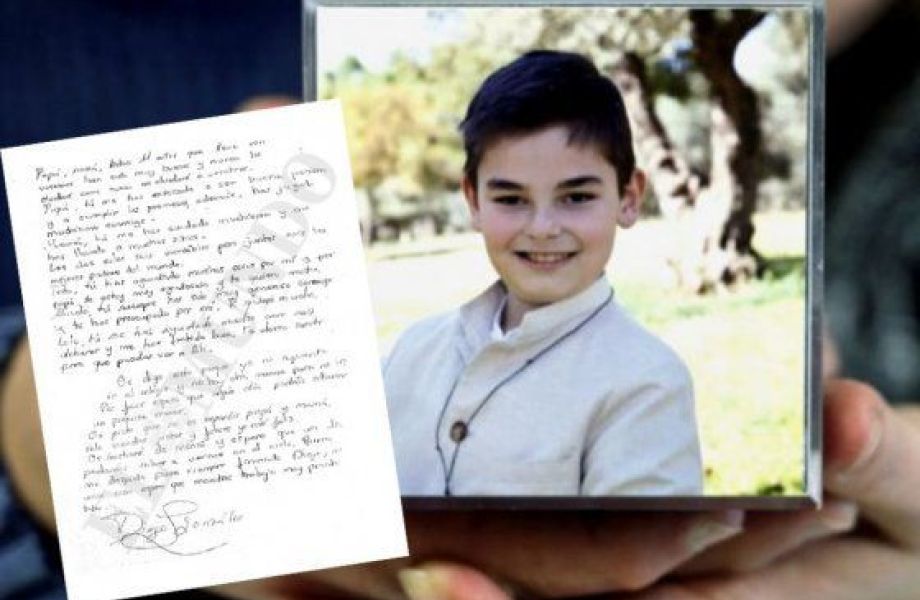 Papá, mamá, estos 11 años que llevo con
vosotros han sido muy buenos y nunca los
olvidaré como nunca os olvidaré a vosotros.
Papá, tú me has enseñado a ser buena persona
y a cumplir las promesas, además, has jugado
muchísimo conmigo.
Mamá, tú me has cuidado muchísimo y me
has llevado a muchos sitios.
Los dos sois increíbles pero juntos sois los
mejores padres del mundo.
Tata, tú has aguantado muchas cosas por mí y por
papá, te estoy muy agradecido y te quiero mucho.
Abuelo, tú siempre has sido muy generoso conmigo
y te has preocupado por mí. Te quiero mucho.
Lolo, tú me has ayudado mucho con mis
deberes y me has tratado bien. Te deseo suerte
para que puedas ver a Eli.
Os digo esto porque yo no aguanto
ir al colegio y no hay otra manera para no ir.
Por favor espero que algún día podáis odiarme
un poquito menos.
Os pido que no os separéis papá y mamá,
sólo viéndoos juntos y felices yo seré feliz.
Os echaré de menos y espero que un día
podamos volver a vernos en el cielo. Bueno,
me despido para siempre. Firmado Diego,
una cosa espero que encuentres trabajo muy pronto
Tata.
Diego González
EL MUNDO